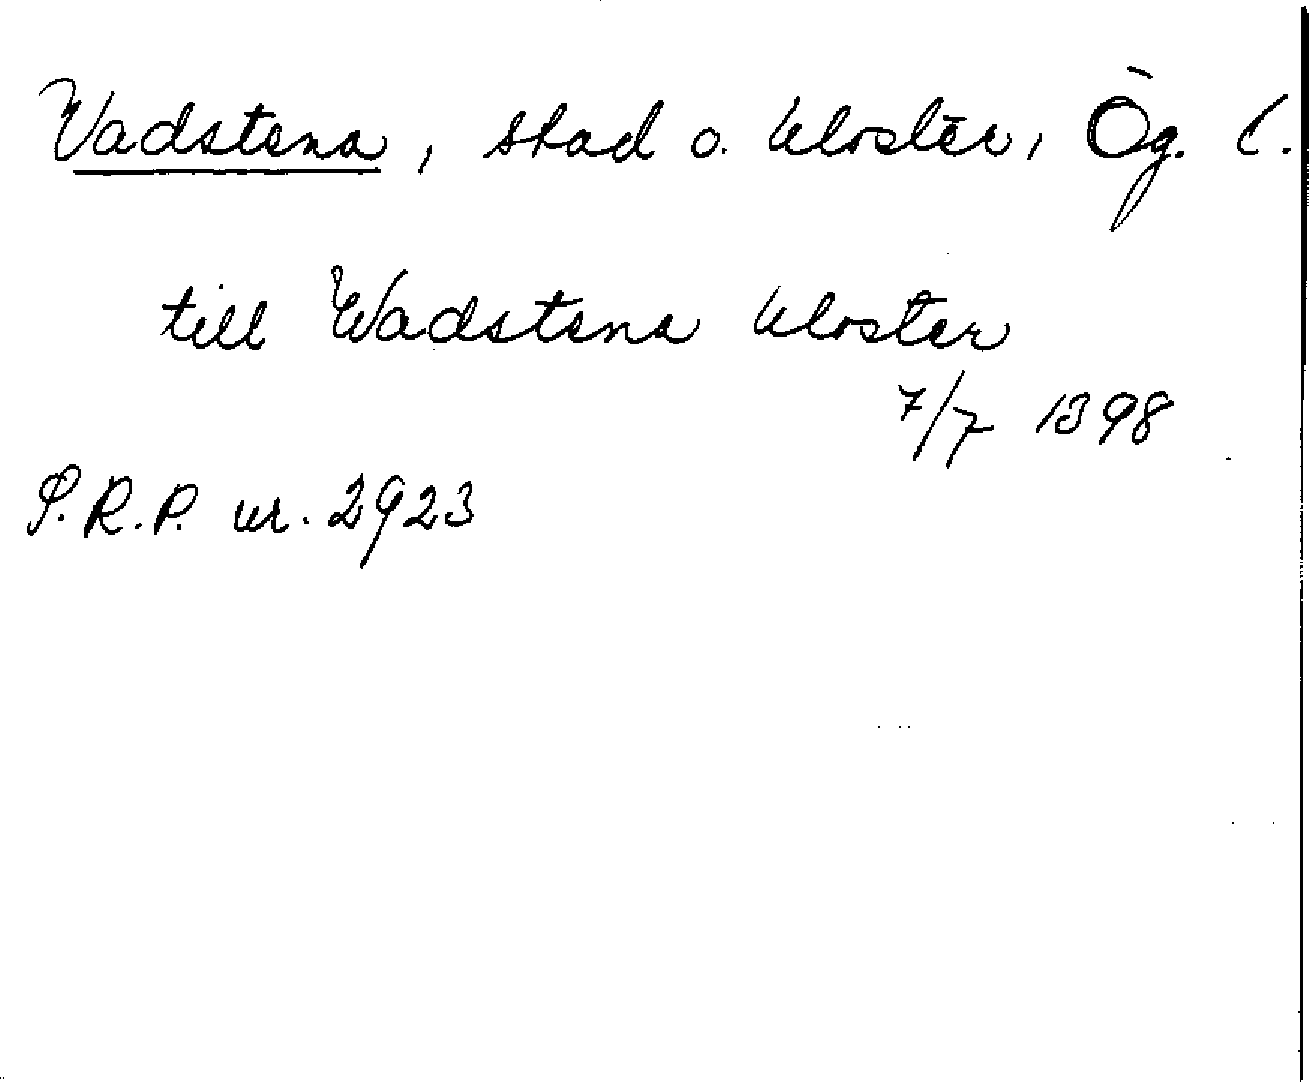 Vadstena, stad o. kloster, Ög. l.
till Wadstena kloster
7/7 1398
S.R.P. nr. 2923